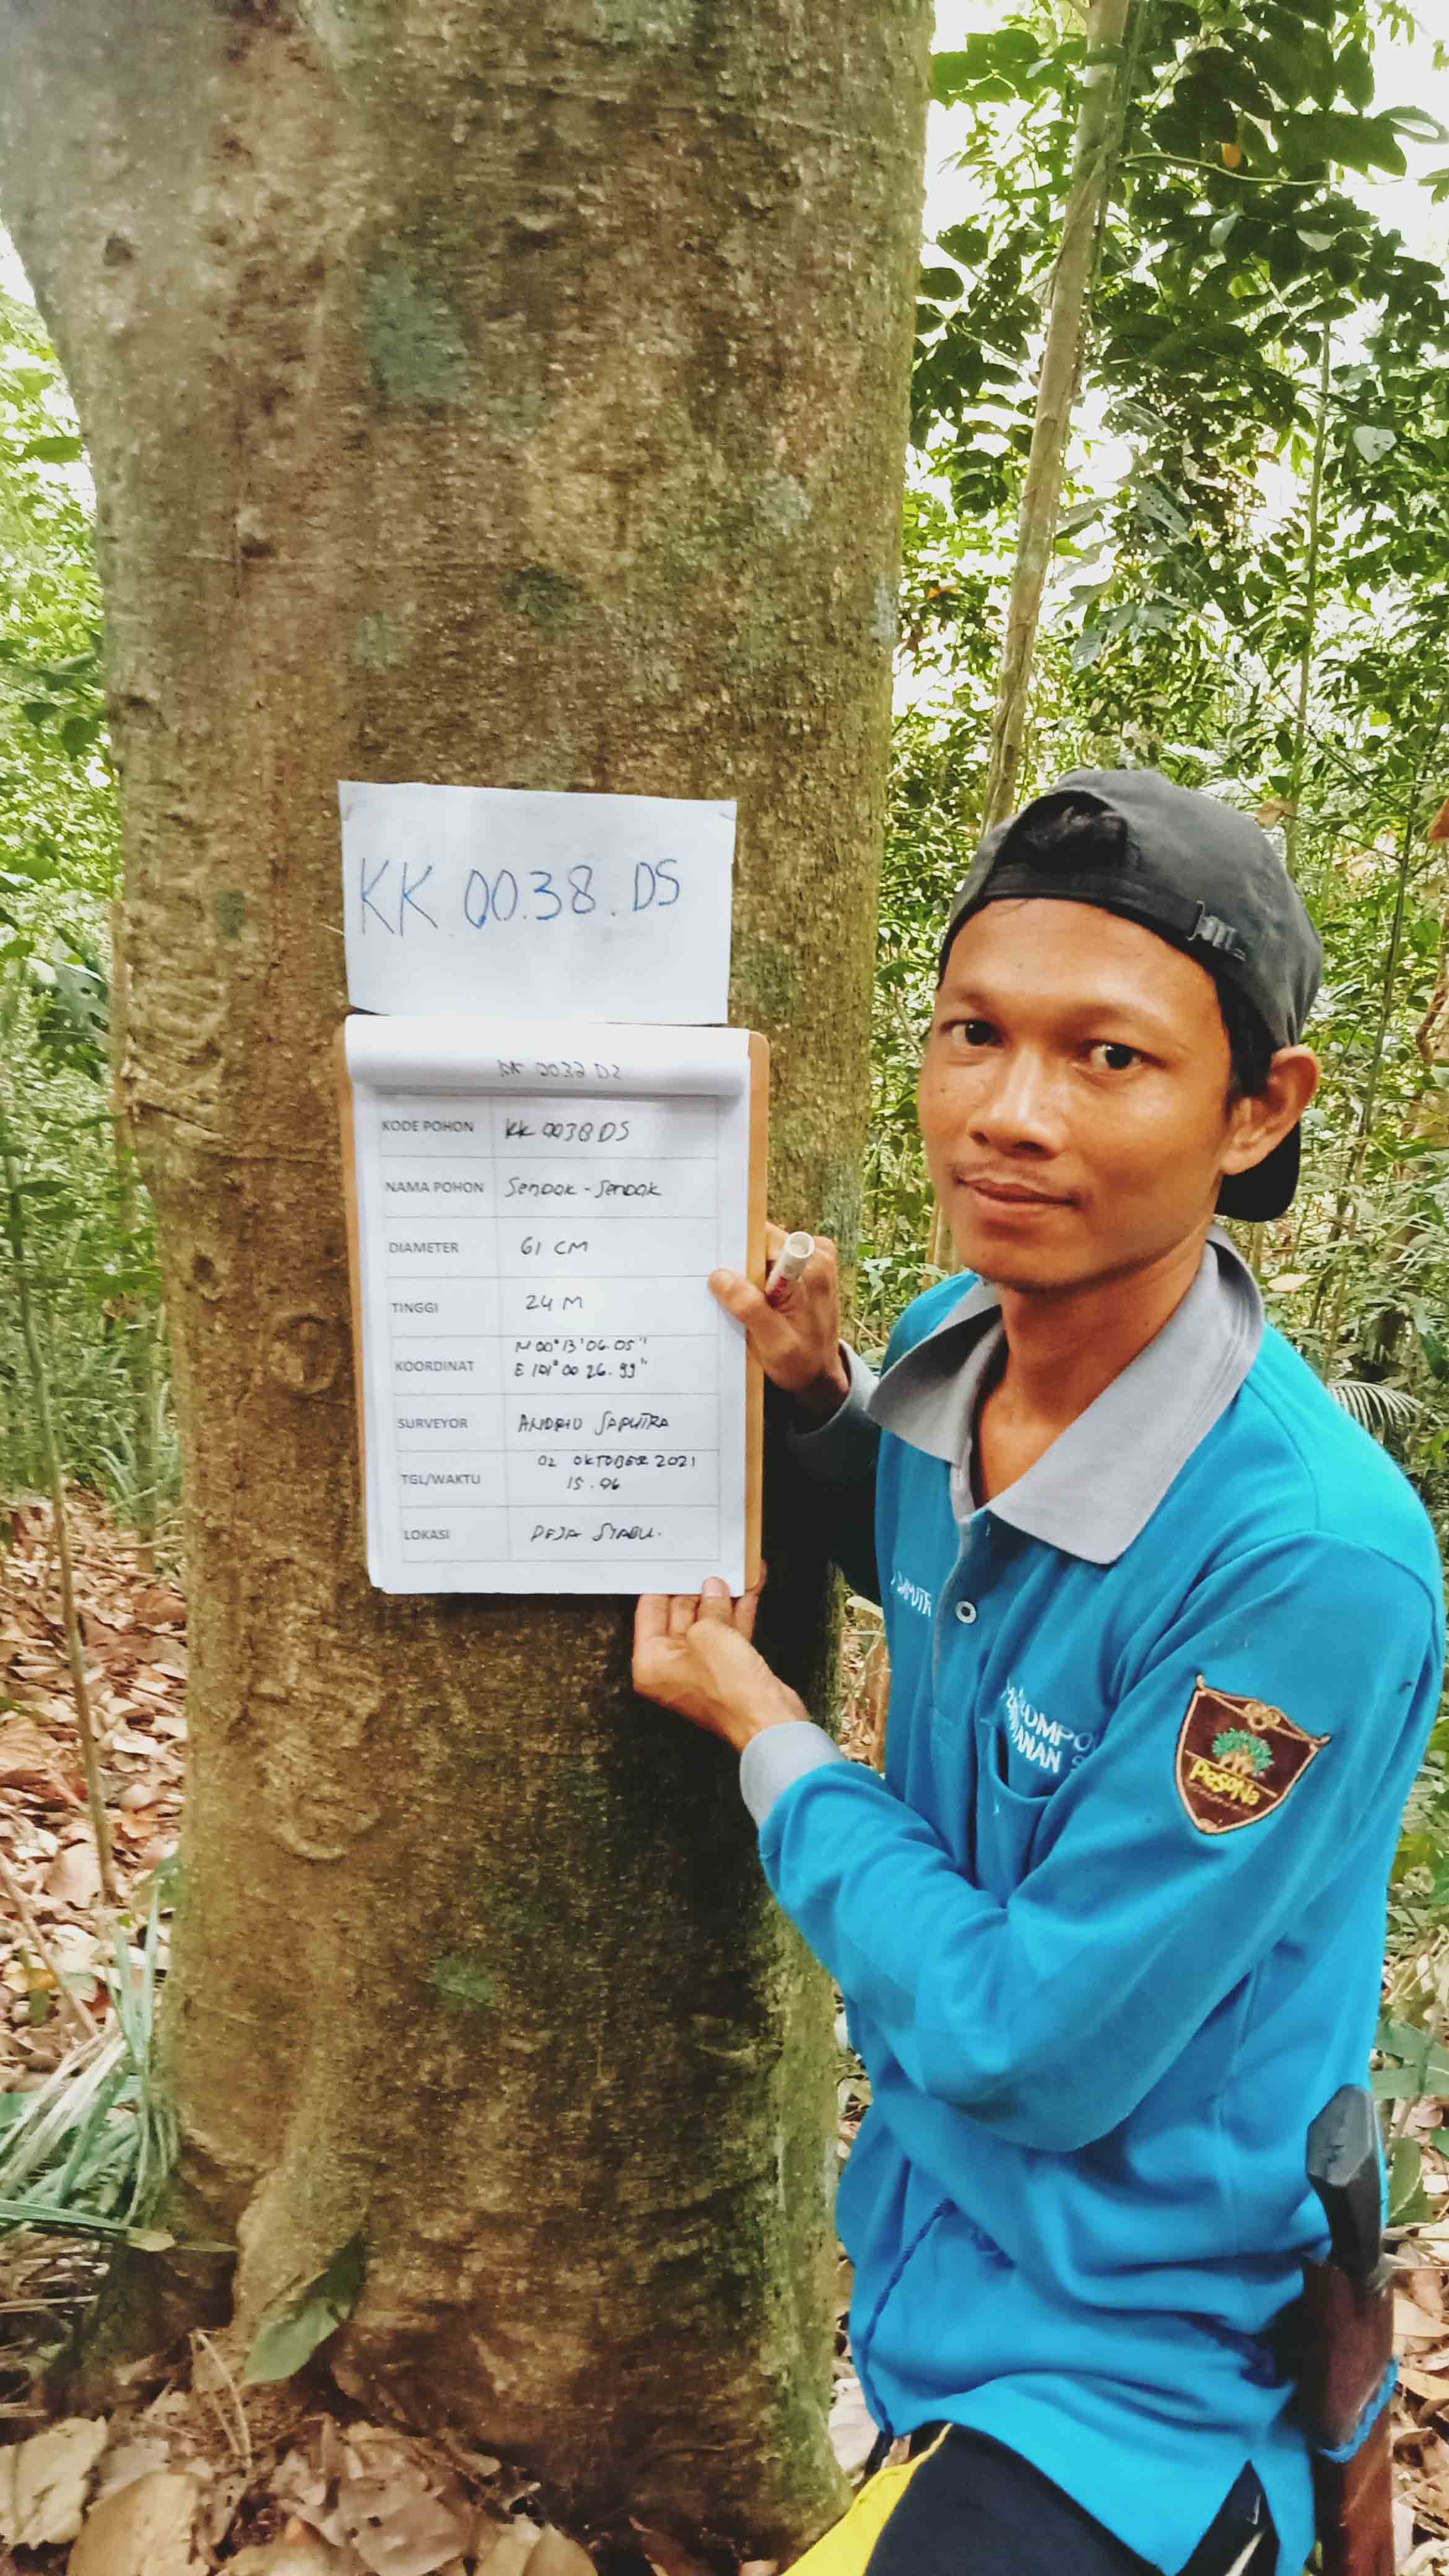 KK.0038.DS
KODE POHON KK 0038 DS
NAMA POHON Sendok - Sendok
DIAMETER 61 CM
TINGGI 24 M
KOORDINAT N 00° 13' 06.05"
E 101° 00 26.99"
SURVEYOR ANDRIU SAPUTRA
TGL/WAKTU 02 OKTOBER 2021
15.06
LOKASI DESA SIABU.
PESONA